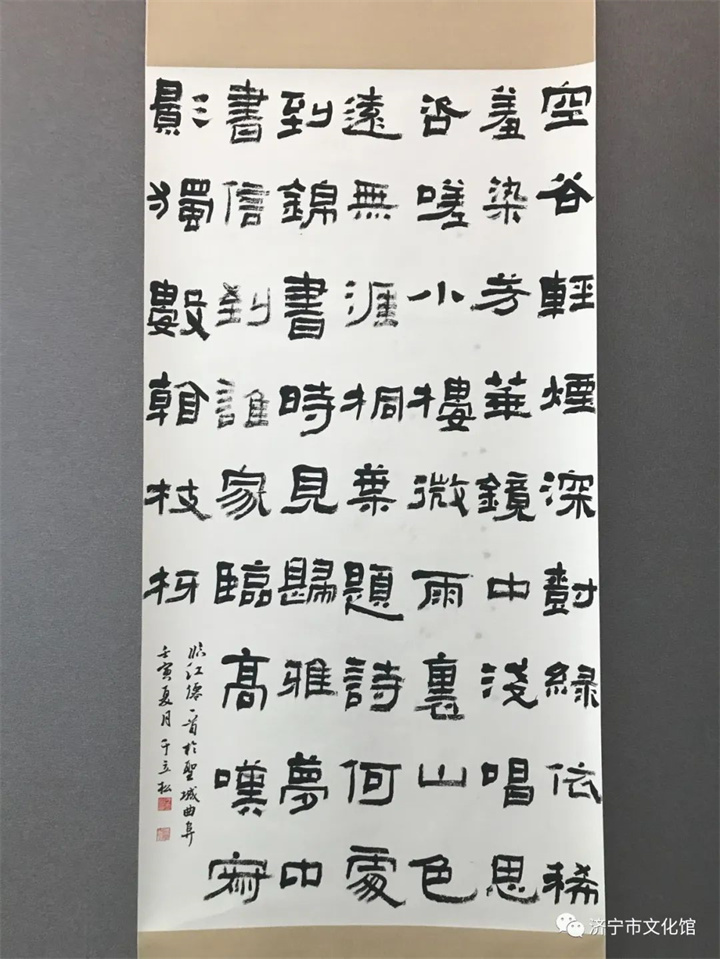 空谷輕煙深對綠依稀
羞染芳華鏡中淺唱思
咨嗟小樓微雨裏山色
遠無涯桐葉題詩何處
到錦書時見歸雅夢中
書信到誰家臨高嘆寂
影獨數朝枝枒
臨江僊一首於聖城曲阜
壬寅夏月于立松
济宁市文化馆